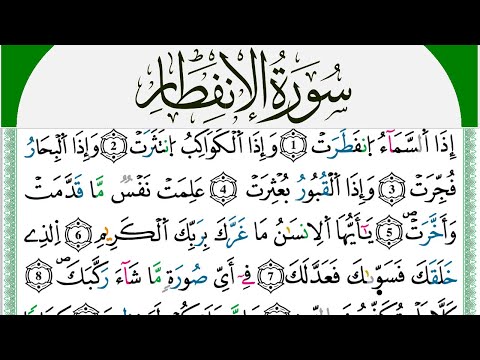 سُورَةُ الْإِنفِطَارِ
إِذَا اَ۬لسَّمَآءُ اُ۪نفَطَرَتْ 1 وَإِذَا اَ۬لْكَوَاكِبُ اُ۪نتَثَرَتْ 2 وَإِذَا اَ۬لْبِحَارُ
فُجِّرَتْ 3 وَإِذَا اَ۬لْقُبُورُ بُعْثِرَتْ 4 عَلِمَتْ نَفْسٌ مَّا قَدَّمَتْ
وَأَخَّرَتْۖ 5 يَٰٓأَيُّهَا اَ۬لِانسَٰنُ مَا غَرَّكَ بِرَبِّكَ اَ۬لْكَرِيمِ 6 اِ۬لذِے
خَلَقَكَ فَسَوّ۪يٰكَ فَعَدَّلَكَ 7 فِےٓ أَيِّ صُورَةٖ مَّا شَآءَ رَكَّبَكَۖ 8